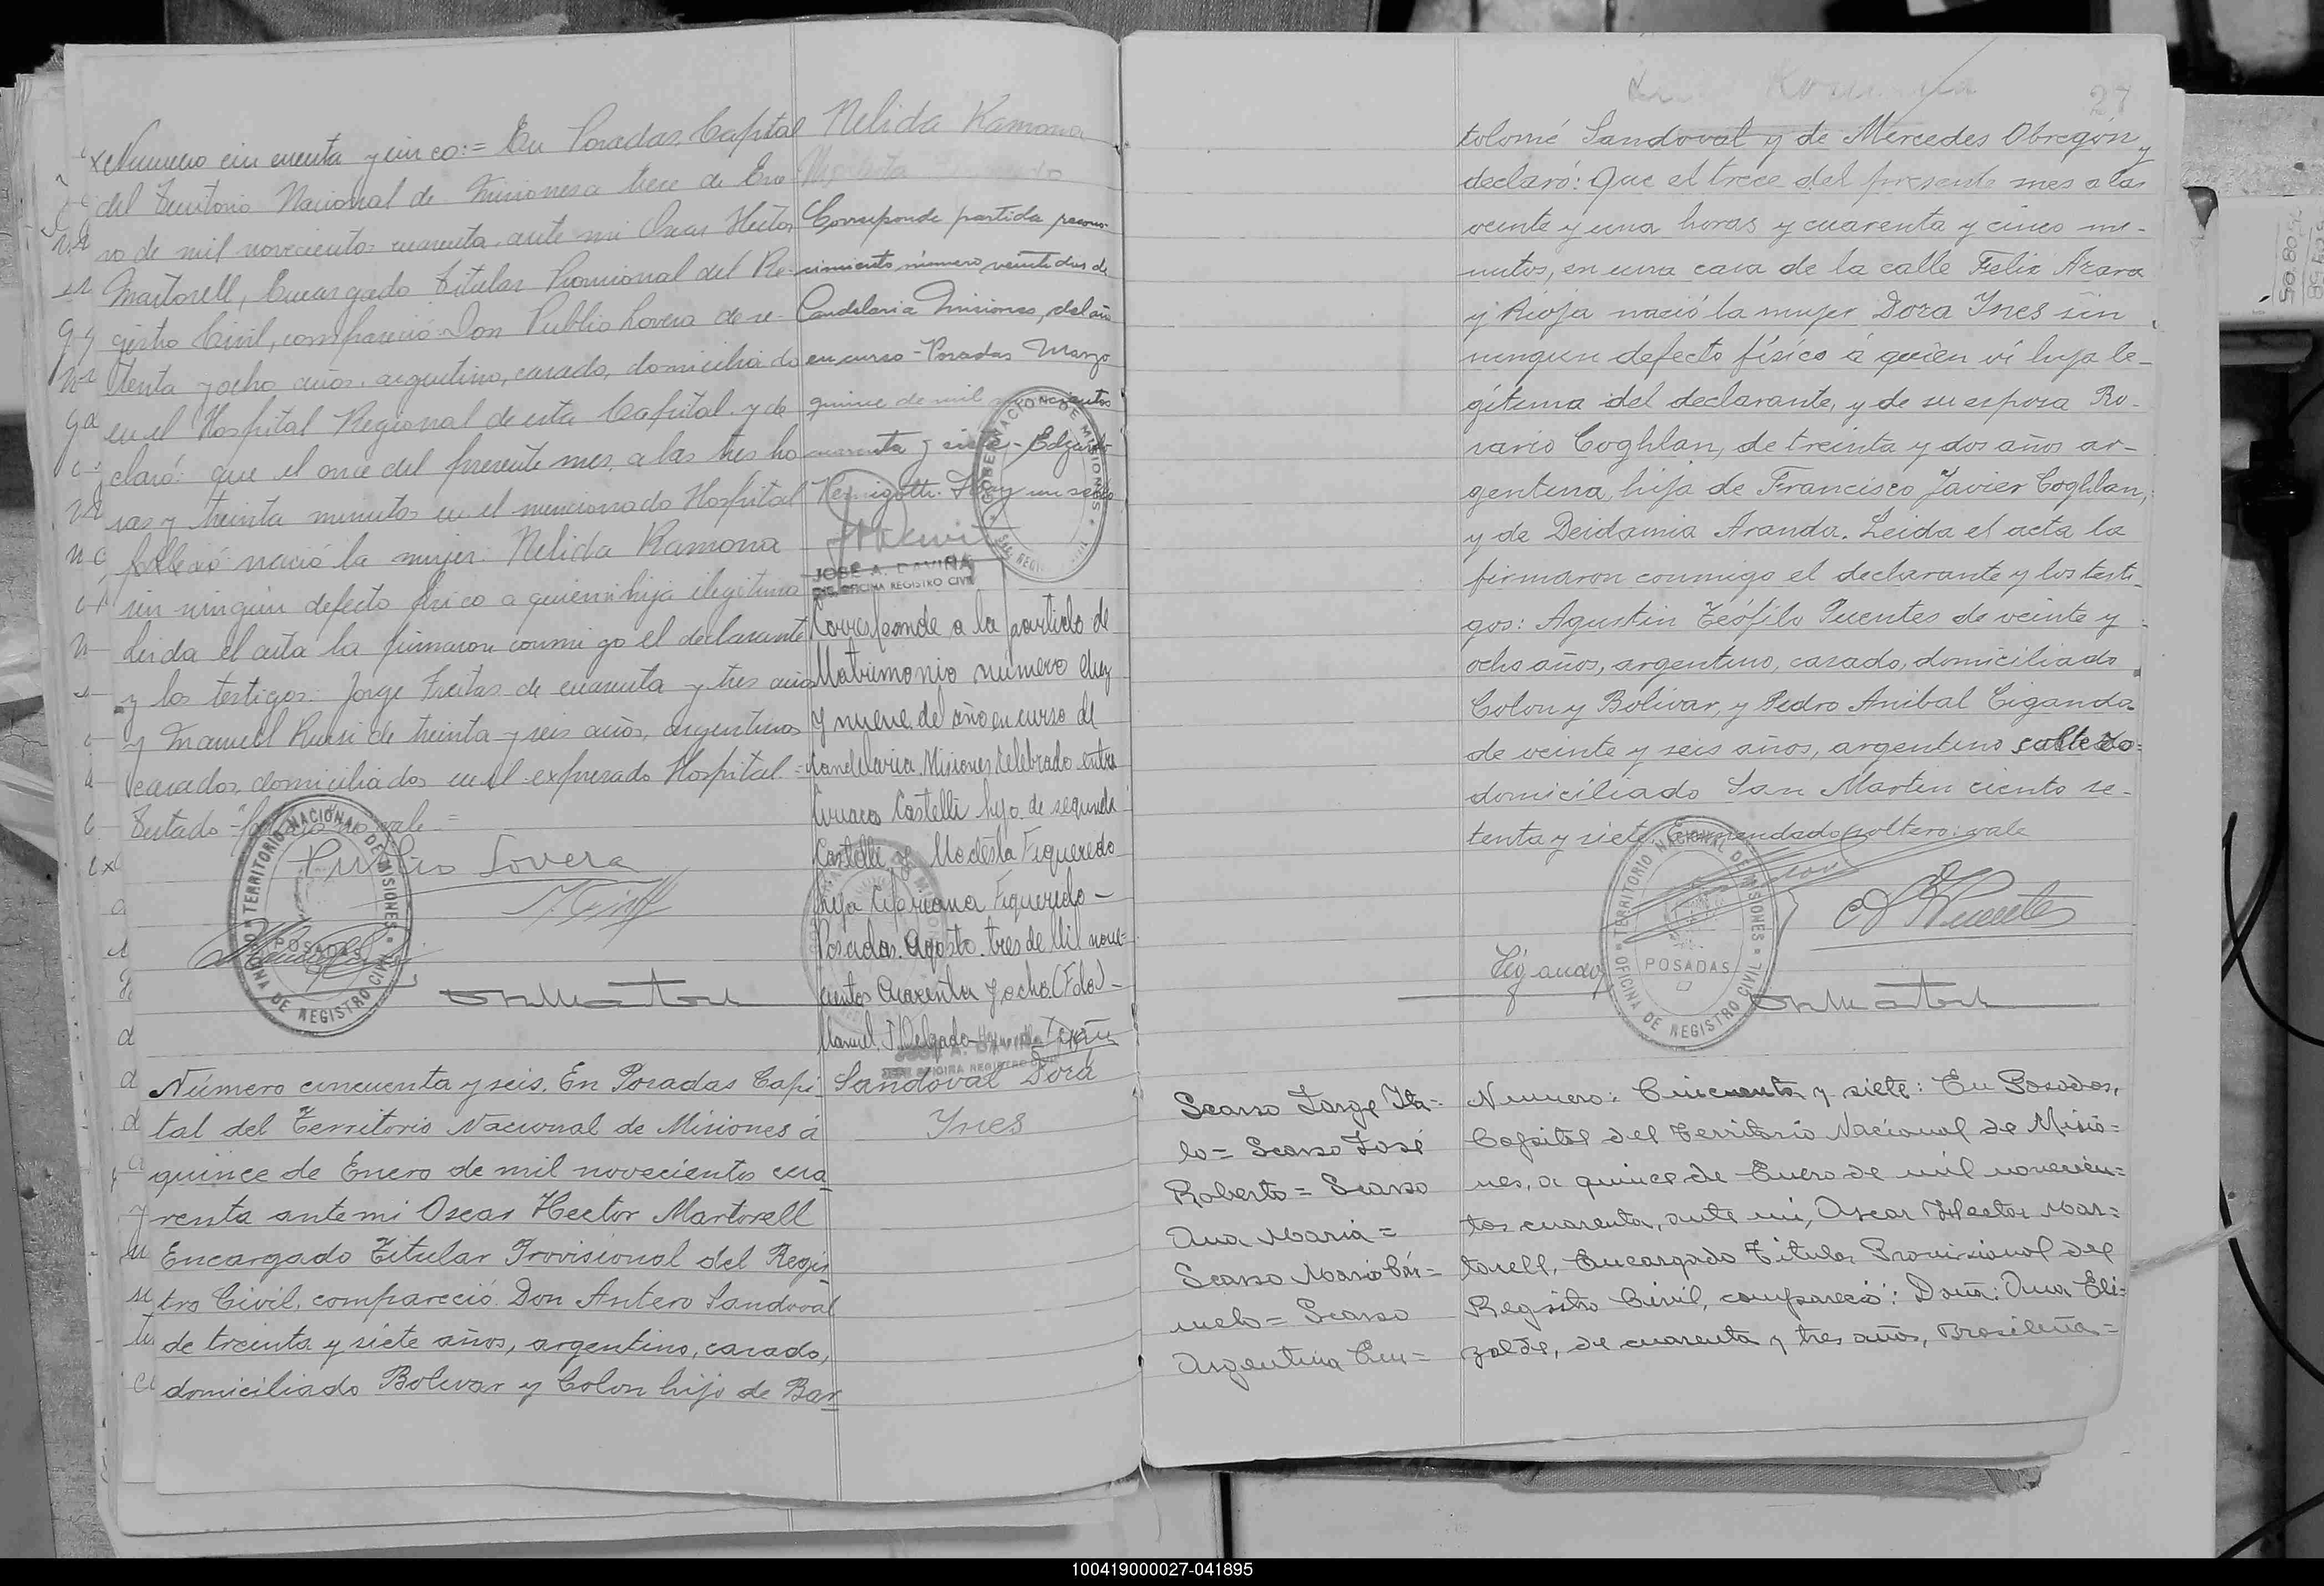 Numero cincuenta y cinco:= En Posadas, Capital
del Territorio Nacional de Misiones a trece de Ene
ro de mil novecientos cuarenta, ante mi Oscar Hector
Martorell, Encargado Titular Provisional del Re-
gistro Civil, compareció Don Publio Lovera de se-
tenta y ocho años, argentino, casado, domiciliado
en el Hospital Regional de esta Capital y de
claró: que el once del presente mes, a las tres ho
ras y treinta minutos en el mencionado Hospital
falleció nació la mujer: Nelida Ramona
sin ningún defecto físico a quien vi hija ilegitima
Leida el acta la firmaron conmigo el declarante
y los testigos: Jorge Freitas de cuarenta y tres años
y Manuel Russi de treinta y seis años, argentinos
casados, domiciliados en el expresado Hospital.=
Testado "falleció" no vale=
Publio Lovera
Nelida Ramona
Corresponde partida recono-
cimiento número veintidos de
Candelaria Misiones, del año
en curso - Posadas Marzo
quince de mil novecientos
cuarenta y siete - Edgardo
Hay un sello
GOBERNACION DE MISIONES
JOSE A. DAVIÑA
JEFE OFICINA REGISTRO CIVIL
Corresponde a la partida de
Matrimonio número diez
y nueve de año en curso de
Candelaria Misiones celebrado entre
Castelli hijo de segundo
Castelli y Modesta Figueredo
hija Cipriana Figueredo -
Posadas. Agosto tres de Mil nove-
cientos Cuarenta y ocho (Fdo) -
Manuel J. Delgado
JOSE A. DAVIÑA
JEFE OFICINA REGISTRO CIVIL
TERRITORIO NACIONAL DE MISIONES
POSADAS
OFICINA DE REGISTRO CIVIL
Número cincuenta y seis. En Posadas Capi-
tal del Territorio Nacional de Misiones á
quince de Enero de mil novecientos cua
renta ante mi Oscar Hector Martorell
Encargado Titular Provisional del Regis
tro Civil, compareció Don Antero Sandoval
de treinta y siete años, argentino, casado,
domiciliado Bolivar y Colon hijo de Bar
Sandoval Dora
Ynes
27
tolomé Sandoval y de Mercedes Obregón y
declaró: Que el trece del presente mes a las
veinte y una horas y cuarenta y cinco mi-
nutos, en una casa de la calle Felix Azara
y Rioja nació la mujer Dora Ynes sin
ningun defecto físico á quien vi hija le-
gítima del declarante, y de su esposa Ro-
sario Coghlan, de treinta y dos años ar-
gentina, hija de Francisco Javier Coghlan,
y de Deidamia Aranda. Leida el acta la
firmaron conmigo el declarante y los testi-
gos: Agustin Teófilo Puentes de veinte y
ocho años, argentino, casado, domiciliado
Colon y Bolivar, y Pedro Anibal Ciganda
de veinte y seis años, argentino soltero
domiciliado San Martin ciento se-
tenta y siete. Enmendado soltero: vale
Ciganda
TERRITORIO NACIONAL DE MISIONES
POSADAS
OFICINA DE REGISTRO CIVIL
Scarso Jorge Ita=
lo= Scarso José
Roberto = Scarso
Ana Maria =
Scarso Mario Cár=
melo = Scarso
Argentina Car=
Numero: Cincuenta y siete: En Posadas,
Capital del Territorio Nacional de Misio=
nes, a quince de Enero de mil novecien=
tos cuarenta, ante mi, Oscar Hector Mar=
torell, Encargado Titular Provisional del
Registro Civil, compareció: Doña: Ana Eli=
zalde, de cuarenta y tres años, Brasileña=
100419000027-041895